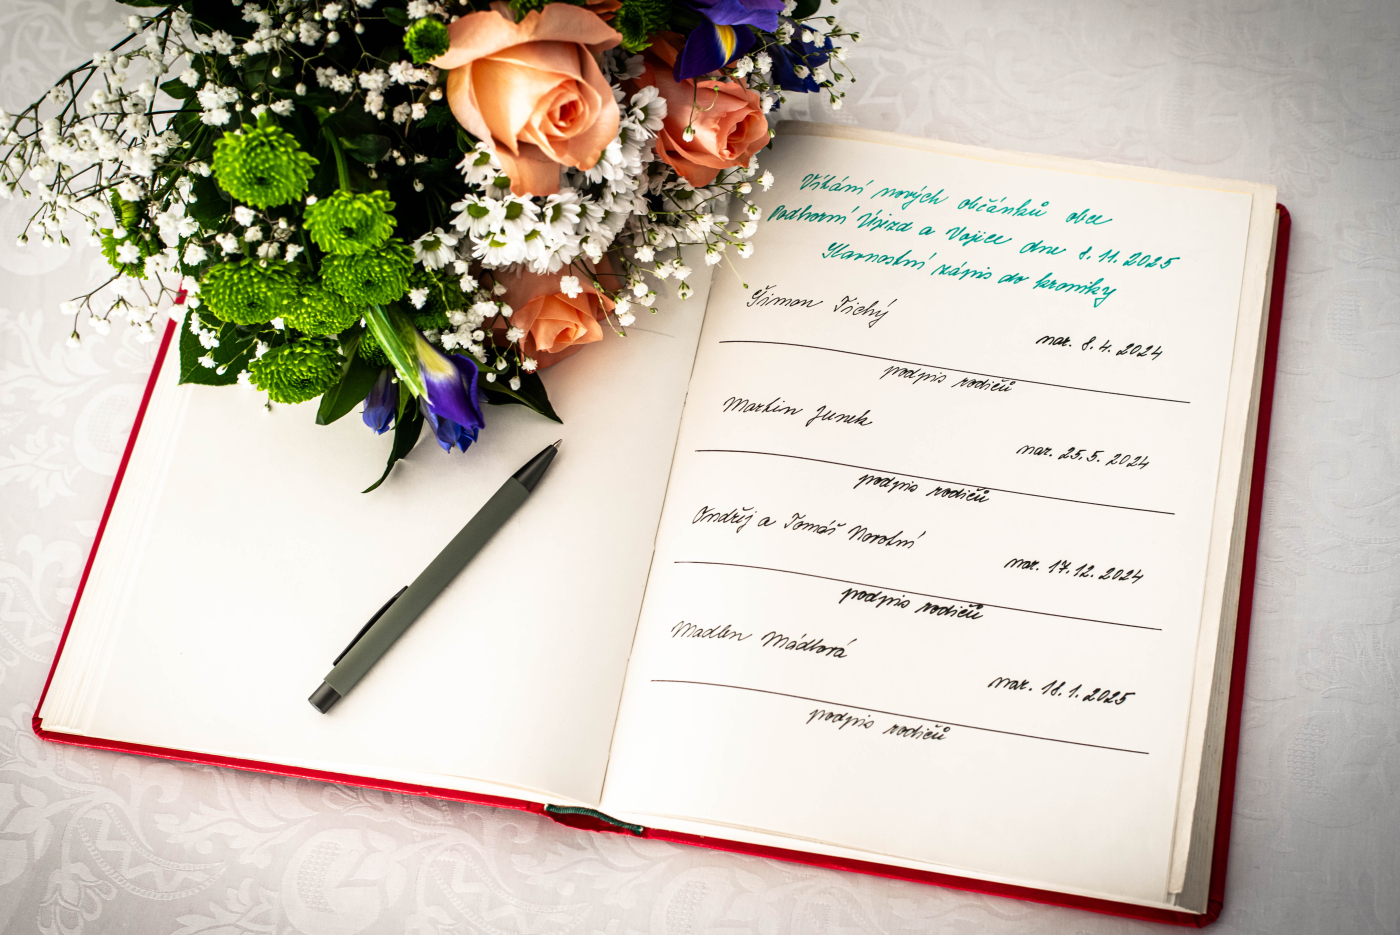 Vítání nových občánků obce
Podhorní Újezd a Vojice dne 8.11.2025
Slavnostní zápis do kroniky
Šimon Tichý
nar. 8.4.2024
podpis rodičů
Martin Junek
nar. 25.5.2024
podpis rodičů
Ondřej a Tomáš Novotní
nar. 17.12.2024
podpis rodičů
Madlen Mádlová
nar. 18.1.2025
podpis rodičů